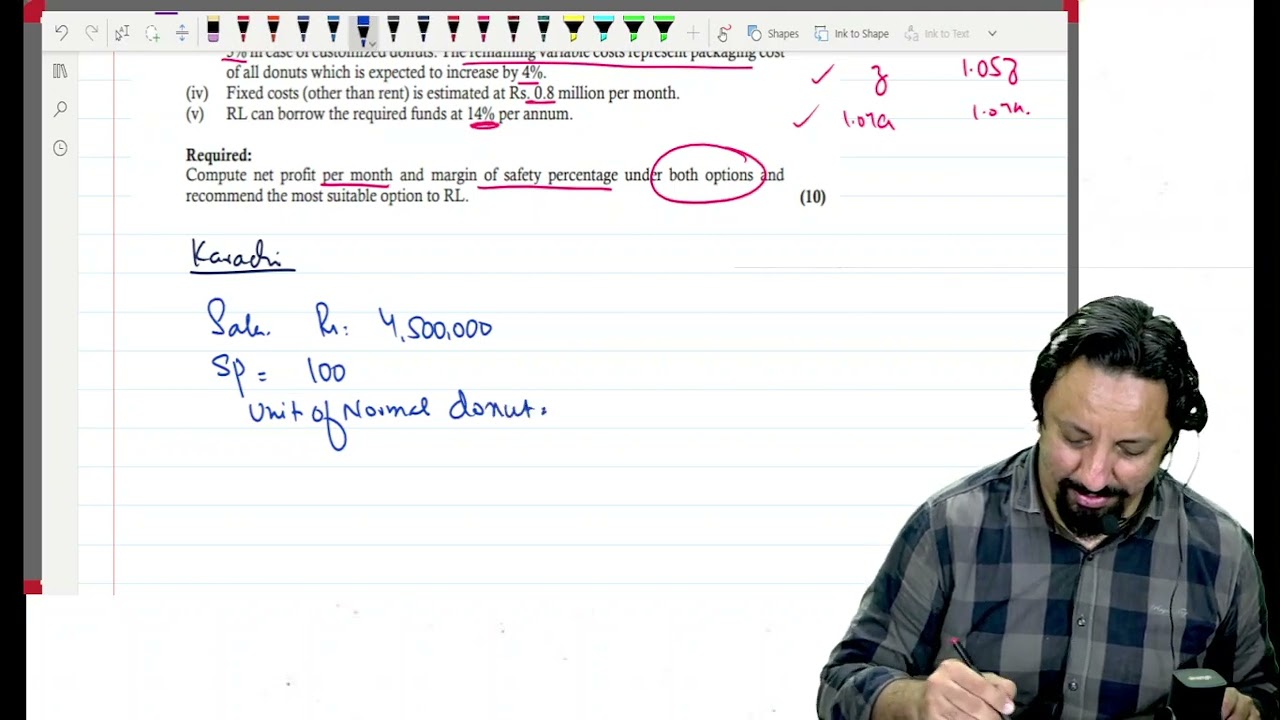 Shapes
Ink to Shape
Ink to Text
5% in case of customized donuts. The remaining variable costs represent packaging cost
of all donuts which is expected to increase by 4%.
(iv) Fixed costs (other than rent) is estimated at Rs. 0.8 million per month.
(v) RL can borrow the required funds at 14% per annum.
✓ z 1.05z
✓ 1.04a 1.04a.
Required:
Compute net profit per month and margin of safety percentage under both options and
recommend the most suitable option to RL.
(10)
Karachi
Sales Rs: 4,500,000
Sp = 100
Unit of Normal donut =